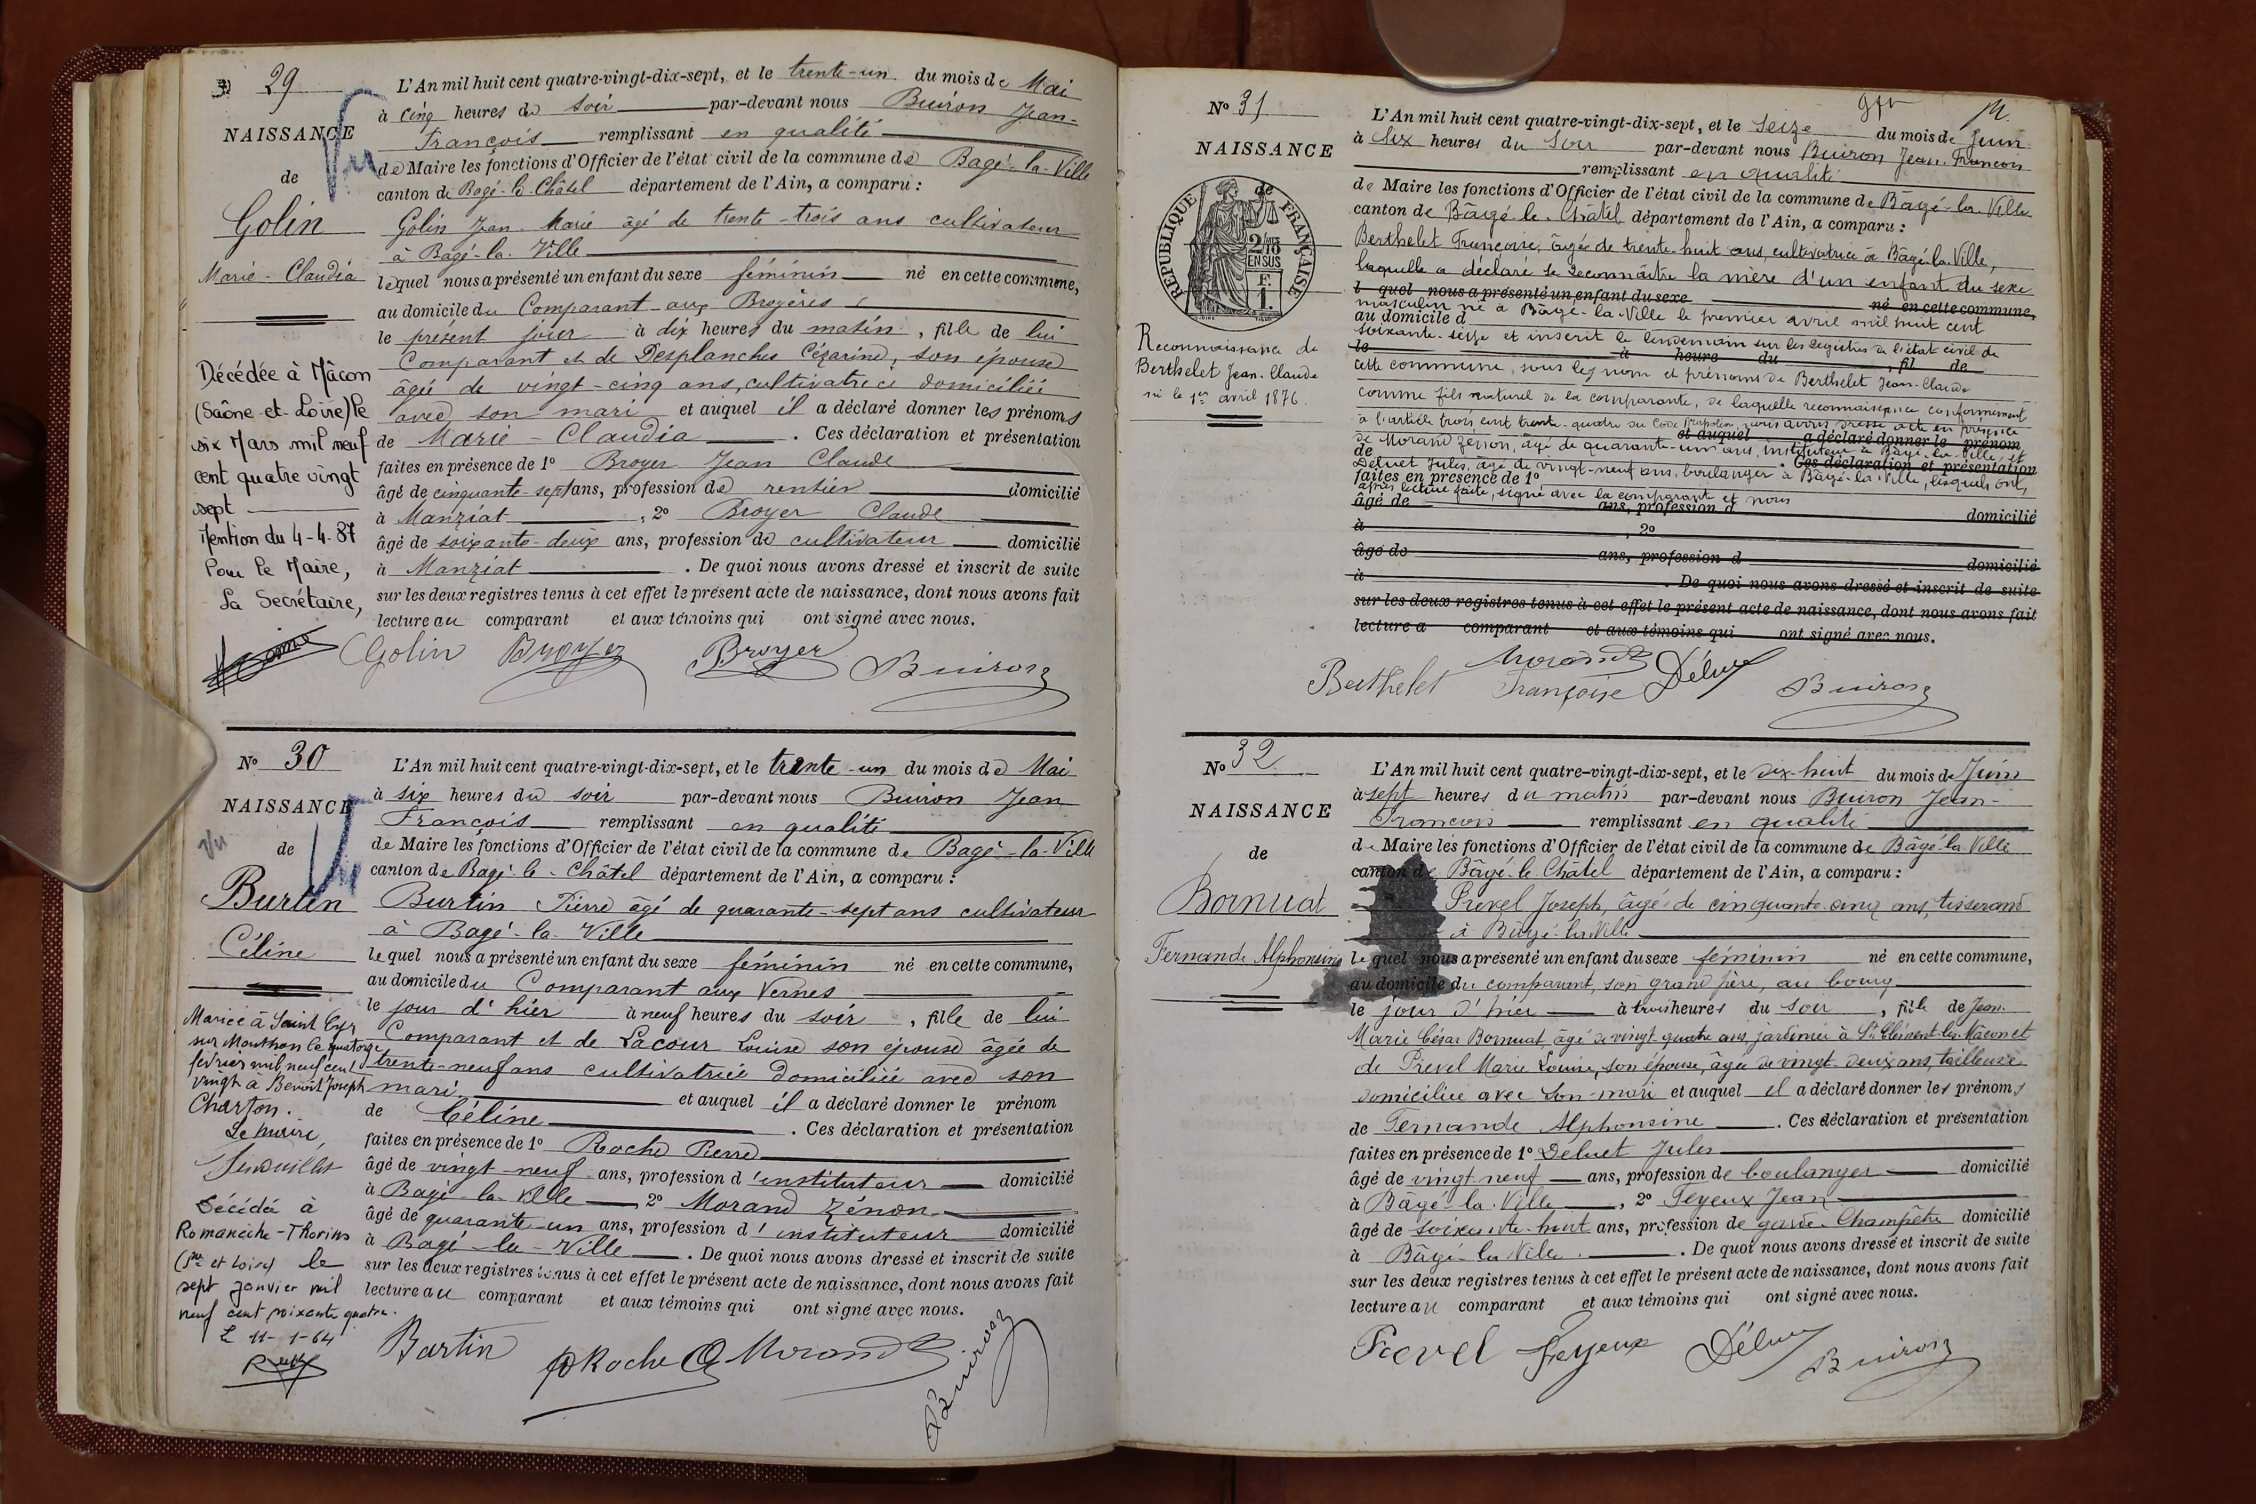 29
NAISSANCE
de
Golin
Marie-Claudia
Décédée à Mâcon
(Saône-et-Loire) le
six Mars mil neuf
cent quatre vingt
sept
Mention du 4-4-87
Pour le Maire,
La Secrétaire,
L'An mil huit cent quatre-vingt-dix-sept, et le trente-un du mois de Mai
à cinq heures du soir par-devant nous Buiron Jean-
François remplissant en qualité
de Maire les fonctions d'Officier de l'état civil de la commune de Bagé-la-Ville
canton de Bagé-le-Châtel département de l'Ain, a comparu :
Golin Jean-Marie âgé de trente-trois ans cultivateur
à Bagé-la-Ville
lequel nous a présenté un enfant du sexe féminin né en cette commune,
au domicile du Comparant aux Broyères
le présent jour à dix heures du matin, fille de lui
Comparant et de Desplanches Cézarine, son épouse
âgée de vingt-cinq ans, cultivatrice domiciliée
avec son mari et auquel il a déclaré donner les prénoms
de Marie-Claudia. Ces déclaration et présentation
faites en présence de 1º Broyer Jean Claude
âgé de cinquante-sept ans, profession de rentier domicilié
à Manziat, 2º Broyer Claude
âgé de soixante-deux ans, profession de cultivateur domicilié
à Manziat. De quoi nous avons dressé et inscrit de suite
sur les deux registres tenus à cet effet le présent acte de naissance, dont nous avons fait
lecture au comparant et aux témoins qui ont signé avec nous.
Golin Broyer Broyer Buiron
Nº 30
NAISSANCE
Vu
de
Burtin
Céline
Mariée à Saint Cyr
sur Menthon le quatorze
février mil neuf cent
vingt à Benoit Joseph
Charton.
Le maire,
Décédée à
Romanèche-Thorins
(Sne et Loire) le
sept janvier mil
neuf cent soixante quatre.
L 11-1-64
L'An mil huit cent quatre-vingt-dix-sept, et le trente-un du mois de Mai
à six heures du soir par-devant nous Buiron Jean
François remplissant en qualité
de Maire les fonctions d'Officier de l'état civil de la commune de Bagé-la-Ville
canton de Bagé-le-Châtel département de l'Ain, a comparu :
Burtin Pierre âgé de quarante-sept ans cultivateur
à Bagé-la-Ville
lequel nous a présenté un enfant du sexe féminin né en cette commune,
au domicile du Comparant aux Vernes
le jour d'hier à neuf heures du soir, fille de lui
Comparant et de Lacour Louise son épouse âgée de
trente-neuf ans cultivatrice domiciliée avec son
mari et auquel il a déclaré donner le prénom
de Céline. Ces déclaration et présentation
faites en présence de 1º Roche Pierre
âgé de vingt-neuf ans, profession d'instituteur domicilié
à Bagé-la-Ville, 2º Morand Zénon
âgé de quarante-un ans, profession d'instituteur domicilié
à Bagé-la-Ville. De quoi nous avons dressé et inscrit de suite
sur les deux registres tenus à cet effet le présent acte de naissance, dont nous avons fait
lecture au comparant et aux témoins qui ont signé avec nous.
Burtin Roche Morand Buiron
Nº 31
NAISSANCE
de
REPUBLIQUE FRANÇAISE
2/10 EN SUS
F. 1.
Reconnaissance de
Berthelet Jean-Claude
né le 1er avril 1876.
L'An mil huit cent quatre-vingt-dix-sept, et le seize du mois de Juin
à six heures du soir par-devant nous Buiron Jean-François
remplissant en qualité
de Maire les fonctions d'Officier de l'état civil de la commune de Bâgé-la-Ville
canton de Bâgé-le-Châtel département de l'Ain, a comparu :
Berthelet Françoise, âgée de trente-huit ans, cultivatrice à Bâgé-la-Ville,
laquelle a déclaré se reconnaître la mère d'un enfant du sexe
l quel nous a présenté un enfant du sexe né en cette commune,
masculin né à Bâgé-la-Ville le premier avril mil huit cent
au domicile d
soixante-seize et inscrit le lendemain sur les registres de l'état civil de
le à heure du , fil de
cette commune, sous les nom et prénoms de Berthelet Jean-Claude
comme fils naturel de la comparante, de laquelle reconnaissance conformément
à l'article trois cent trente-quatre du Code Napoléon, nous avons dressé acte en présence
et auquel a déclaré donner le prénom
de Morand Zénon, âgé de quarante-un ans, instituteur à Bâgé-la-Ville, et
de . Ces déclaration et présentation
Deluet Jules, âgé de vingt-neuf ans, boulanger à Bâgé-la-Ville, lesquels ont,
faites en présence de 1º
après lecture faite, signé avec la comparante et nous
âgé de ans, profession d domicilié
à , 2º
âgé de ans, profession d domicilié
à . De quoi nous avons dressé et inscrit de suite
sur les deux registres tenus à cet effet le présent acte de naissance, dont nous avons fait
lecture a comparant et aux témoins qui ont signé avec nous.
Berthelet Françoise Morand Déluet Buiron
Nº 32
NAISSANCE
de
Bornuat
Fernande Alphonsine
L'An mil huit cent quatre-vingt-dix-sept, et le dix-huit du mois de Juin
à sept heures du matin par-devant nous Buiron Jean-
François remplissant en qualité
de Maire les fonctions d'Officier de l'état civil de la commune de Bâgé-la-Ville
canton de Bâgé-le-Châtel département de l'Ain, a comparu :
Prevel Joseph, âgé de cinquante-cinq ans, tisserand
à Bâgé-la-Ville
lequel nous a présenté un enfant du sexe féminin né en cette commune,
au domicile du comparant, son grand père, au bourg
le jour d'hier à trois heures du soir, fille de Jean-
Marie César Bornuat, âgé de vingt-quatre ans, jardinier à St Clément-les-Mâcon et
de Prevel Marie Louise, son épouse, âgée de vingt-deux ans, tailleuse
domiciliée avec son mari et auquel il a déclaré donner les prénoms
de Fernande Alphonsine. Ces déclaration et présentation
faites en présence de 1º Deluet Jules
âgé de vingt-neuf ans, profession de boulanger domicilié
à Bâgé-la-Ville, 2º Feyeux Jean
âgé de soixante-huit ans, profession de garde-Champêtre domicilié
à Bâgé-la-Ville. De quoi nous avons dressé et inscrit de suite
sur les deux registres tenus à cet effet le présent acte de naissance, dont nous avons fait
lecture au comparant et aux témoins qui ont signé avec nous.
Prevel Feyeux Déluet Buiron